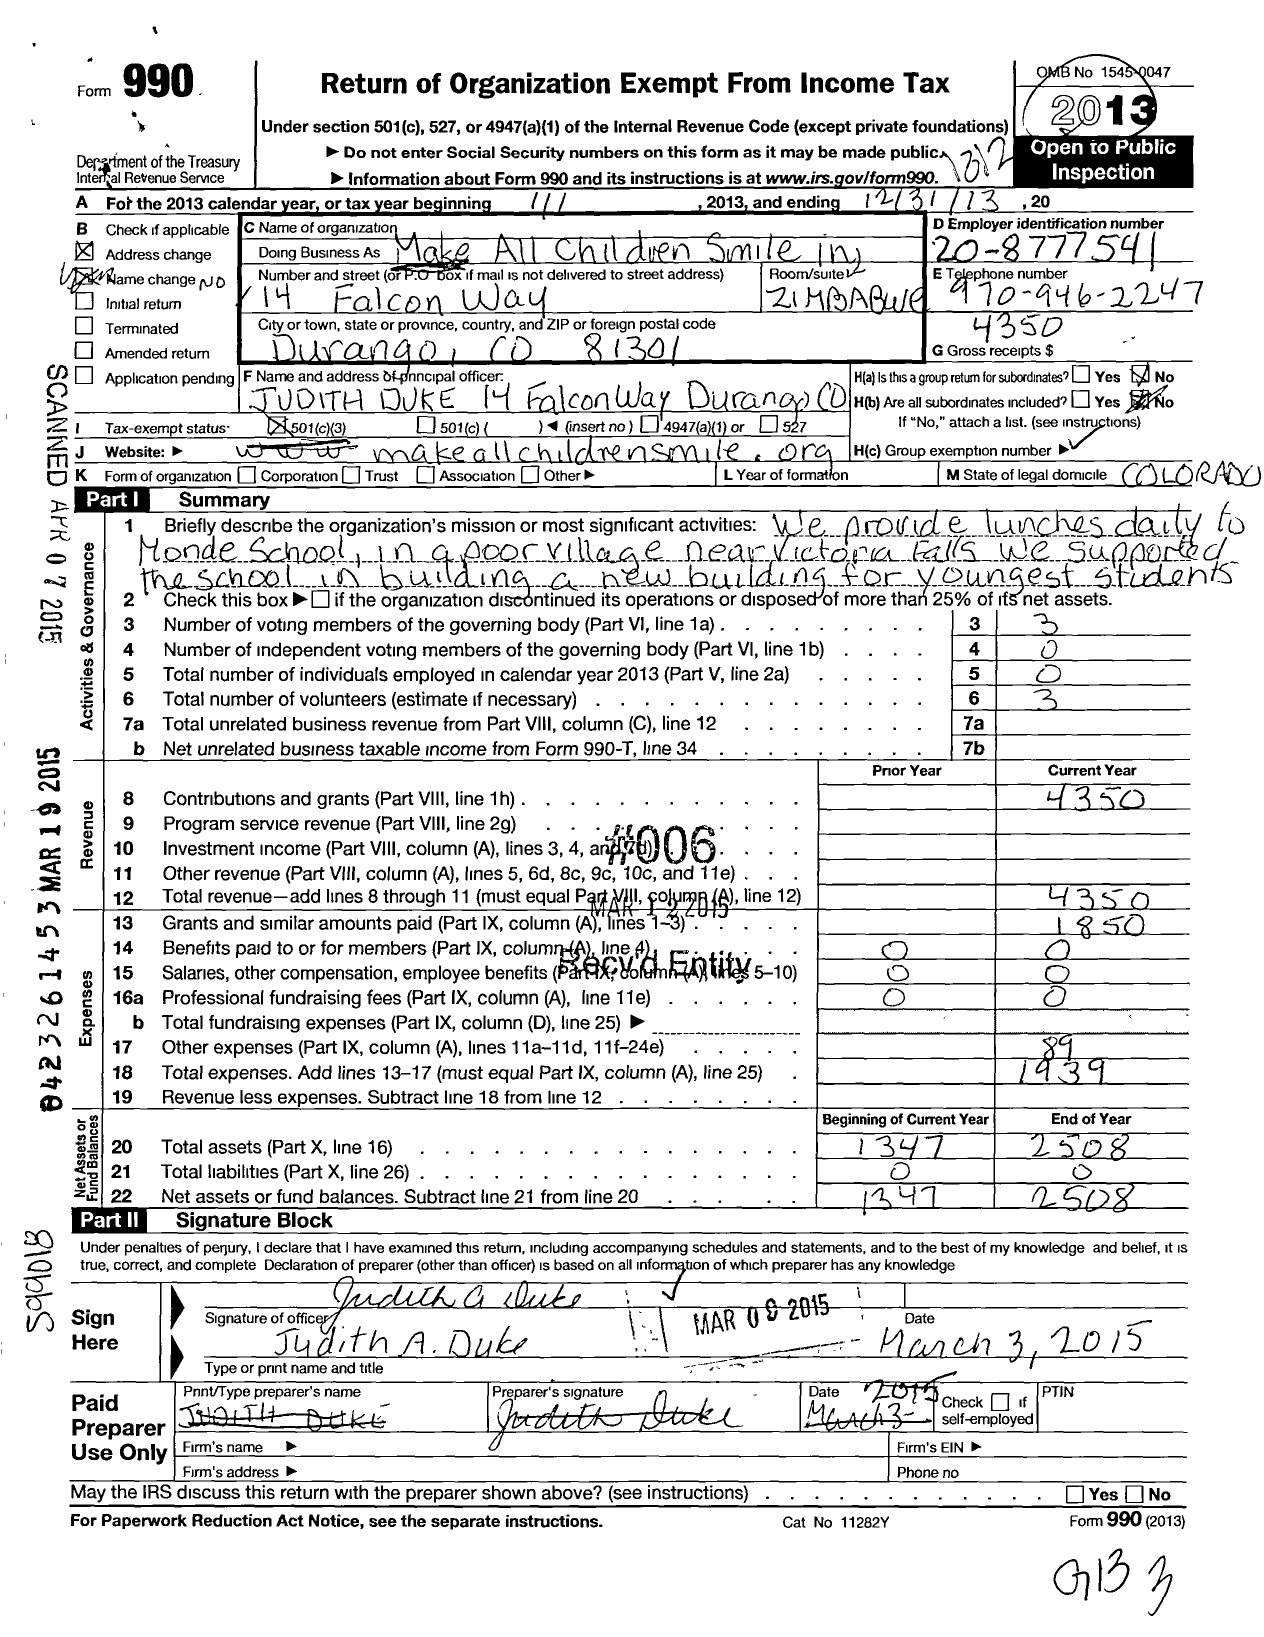 Form 990
Return of Organization Exempt From Income Tax
OMB No 1545-0047
2013
Under section 501(c), 527, or 4947(a)(1) of the Internal Revenue Code (except private foundations)
▶ Do not enter Social Security numbers on this form as it may be made public.
1312
Open to Public Inspection
Department of the Treasury
Internal Revenue Service
▶ Information about Form 990 and its instructions is at www.irs.gov/form990.
A For the 2013 calendar year, or tax year beginning 1/1 , 2013, and ending 12/31/13 , 20
B Check if applicable
Address change
Name change NO
Initial return
Terminated
Amended return
Application pending
C Name of organization
Doing Business As Make All Children Smile in
Number and street (or P.O box if mail is not delivered to street address)
Room/suite
14 Falcon Way
ZIMBABWE
City or town, state or province, country, and ZIP or foreign postal code
Durango, CO 81301
D Employer identification number
20-8777541
E Telephone number
970-946-2247
4350
G Gross receipts $
F Name and address of principal officer:
JUDITH DUKE 14 Falcon Way Durango CO
H(a) Is this a group return for subordinates? Yes No
H(b) Are all subordinates included? Yes No
If "No," attach a list. (see instructions)
I Tax-exempt status: 501(c)(3) 501(c) ( ) ◀ (insert no ) 4947(a)(1) or 527
J Website: ▶ www makeallchildrensmile.org
H(c) Group exemption number ▶
K Form of organization Corporation Trust Association Other ▶
L Year of formation
M State of legal domicile COLORADO
Part I Summary
1 Briefly describe the organization's mission or most significant activities: We provide lunches daily to
Monde School, in a poor village near Victoria Falls We supported
the school in building a new building for youngest students
2 Check this box ▶ if the organization discontinued its operations or disposed of more than 25% of its net assets.
3 Number of voting members of the governing body (Part VI, line 1a) . 3 3
4 Number of independent voting members of the governing body (Part VI, line 1b) 4 0
5 Total number of individuals employed in calendar year 2013 (Part V, line 2a) 5 0
6 Total number of volunteers (estimate if necessary) 6 3
7a Total unrelated business revenue from Part VIII, column (C), line 12 7a
b Net unrelated business taxable income from Form 990-T, line 34 7b
Prior Year Current Year
8 Contributions and grants (Part VIII, line 1h) . 4350
9 Program service revenue (Part VIII, line 2g)
10 Investment income (Part VIII, column (A), lines 3, 4, and 7d)
11 Other revenue (Part VIII, column (A), lines 5, 6d, 8c, 9c, 10c, and 11e)
12 Total revenue—add lines 8 through 11 (must equal Part VIII, column (A), line 12) 4350
13 Grants and similar amounts paid (Part IX, column (A), lines 1–3) 1850
14 Benefits paid to or for members (Part IX, column (A), line 4) 0 0
15 Salaries, other compensation, employee benefits (Part IX, column (A), lines 5–10) 0 0
16a Professional fundraising fees (Part IX, column (A), line 11e) 0 0
b Total fundraising expenses (Part IX, column (D), line 25) ▶
17 Other expenses (Part IX, column (A), lines 11a–11d, 11f–24e) 89
18 Total expenses. Add lines 13–17 (must equal Part IX, column (A), line 25) 1939
19 Revenue less expenses. Subtract line 18 from line 12
Beginning of Current Year End of Year
20 Total assets (Part X, line 16) 1347 2508
21 Total liabilities (Part X, line 26) 0 0
22 Net assets or fund balances. Subtract line 21 from line 20 1347 2508
Activities & Governance
Revenue
Expenses
Net Assets or Fund Balances
#006
MAR 12 2015
Recv'd Entity
SCANNED APR 07 2015
0423261453 MAR 19 2015
599018
Part II Signature Block
Under penalties of perjury, I declare that I have examined this return, including accompanying schedules and statements, and to the best of my knowledge and belief, it is
true, correct, and complete Declaration of preparer (other than officer) is based on all information of which preparer has any knowledge
Sign Here
Judith A Duke
Signature of officer
MAR 09 2015
Date
Judith A. Duke
March 3, 2015
Type or print name and title
Paid Preparer Use Only
Print/Type preparer's name
JUDITH DUKE
Preparer's signature
Judith Duke
Date 2015
March 3
Check if self-employed
PTIN
Firm's name ▶
Firm's EIN ▶
Firm's address ▶
Phone no
May the IRS discuss this return with the preparer shown above? (see instructions) Yes No
For Paperwork Reduction Act Notice, see the separate instructions.
Cat No 11282Y
Form 990 (2013)
G13 3